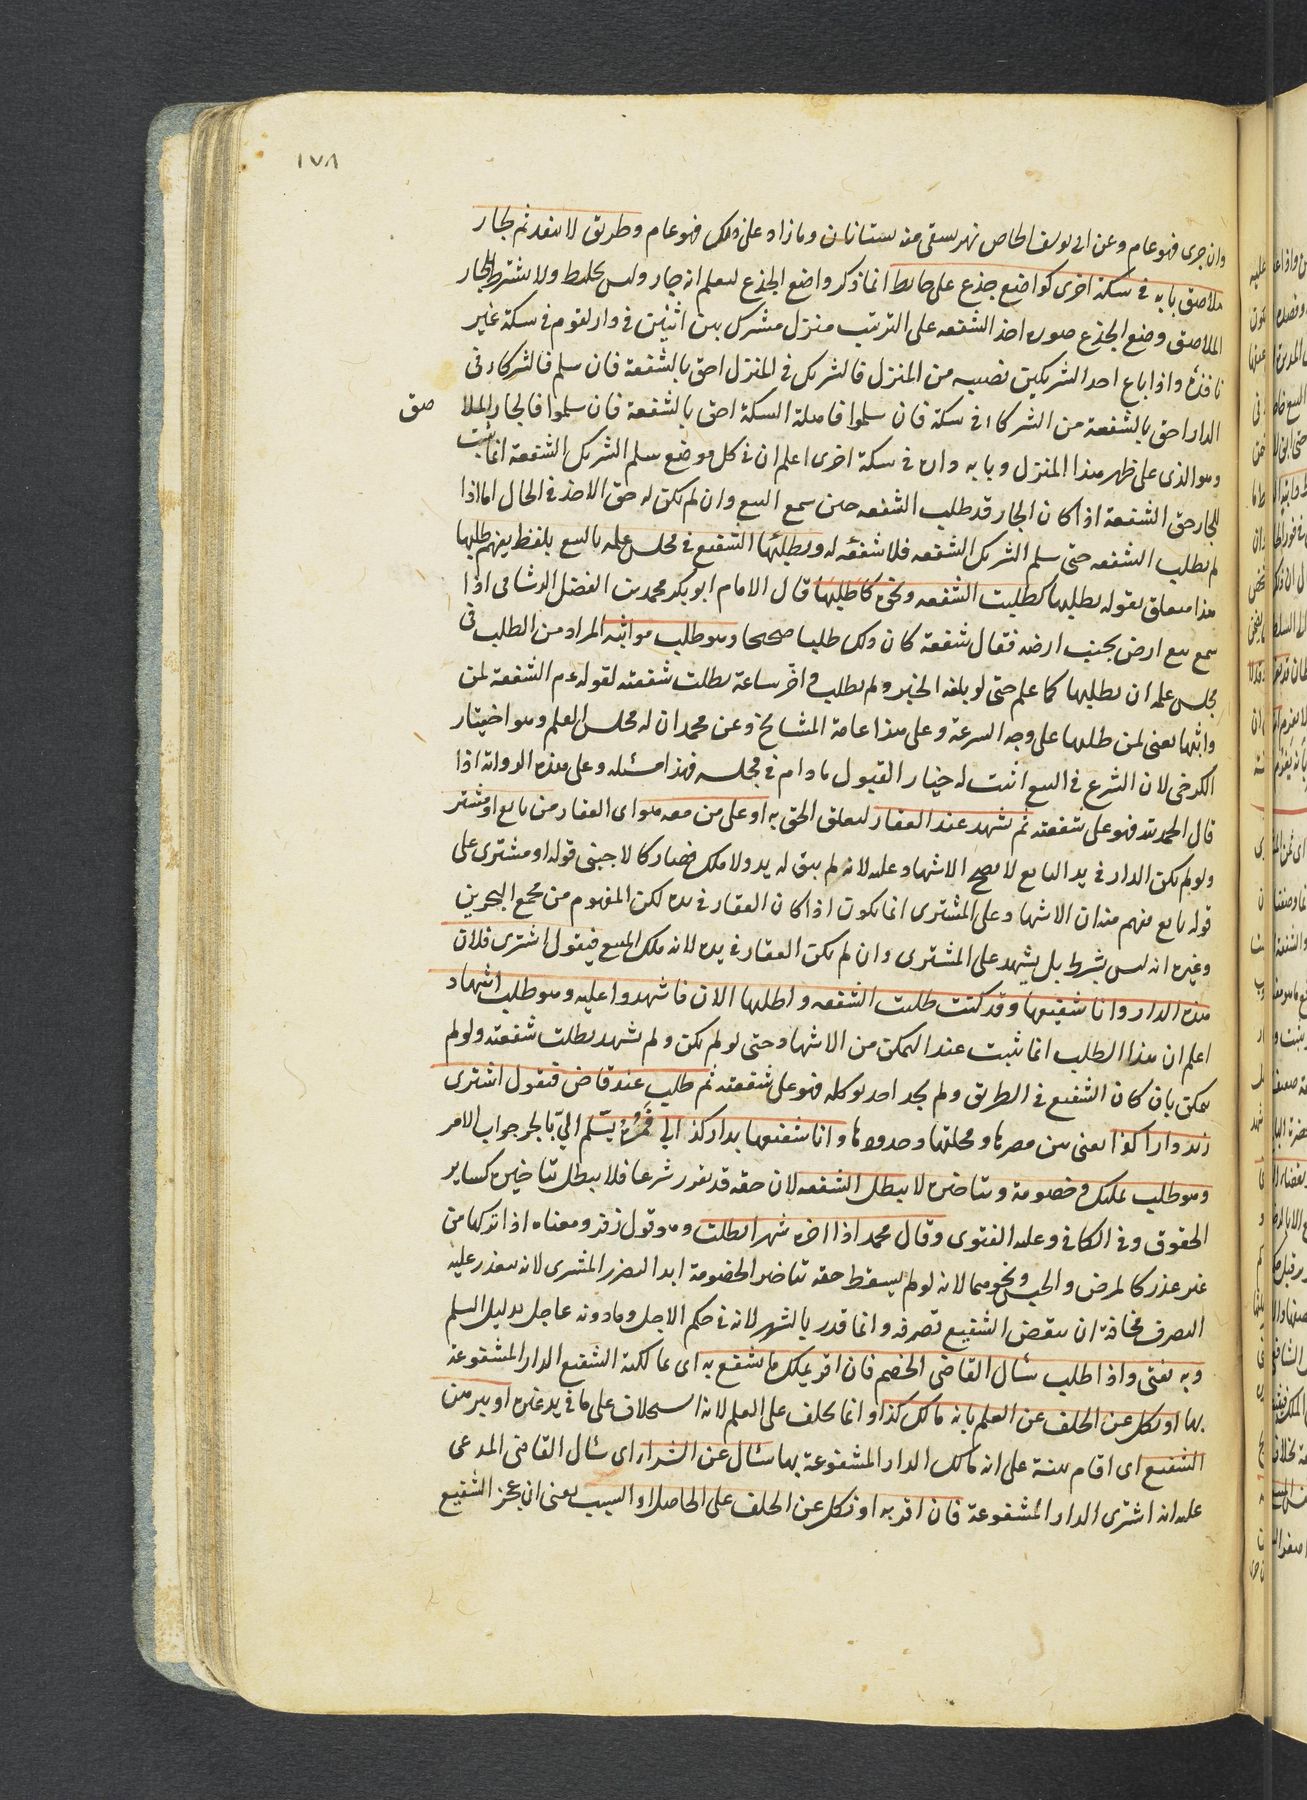 ١٧٨
وان جرى فهو عام وعن ابي يوسف الخاص نهر يسقى منه بستانان وما زاد على ذلك فهو عام وطريق لا ينفذ ثم لجار
ملاصق بابه في سكة اخرى كواضع جذع على حايط انما ذكر واضع الجذع ليعلم انه جار وليس بخليط ولا يشترط للجار
الملاصق وضع الجذع صورة اخذ الشفعه على الترتيب منزل مشترك بين اثنين في دار لقوم في سكة غير
نافذة واذا باع احد الشريكين نصيبه من المنزل فالشريك في المنزل احق بالشفعة فان سلم فالشركاء في
الدار احق بالشفعة من الشركاء في سكة فان سلموا فاهل السكة احق بالشفعة فان سلموا فالجار الملا صق
وهو الذى على ظهر هذا المنزل وبابه داره في سكة اخرى اعلم ان في كل موضع سلم الشريك الشفعة انما يثبت
للجار حق الشفعة اذا كان الجار قد طلب الشفعه حين سمع البيع وان لم يكن له حق الاخذ في الحال اما اذا
لم يطلب الشفعه حتى سلم الشريك الشفعه فلا شفعه له ويطلبها الشفيع في مجلس علمه بالبيع بلفظ يفهم طلبها
هذا متعلق بقوله يطلبها كطلبت الشفعه ونحوه كاطلبها قال الامام ابو بكر محمد بن الفضل اذا
سمع بيع ارض بجنب ارضه فقال شفعة كان ذلك طلبا صحيحا وهو طلب مواثبة المراد من الطلب في
مجلس علمه ان يطلبها كما علم حتى لو بلغه الخبر ولم يطلب في اخر ساعة بطلت شفعته لقوله عم الشفعة لمن
واثبها يعنى لمن طلبها على وجه السرعة وعلى هذا عامة المشايخ وعن محمد ان له مجلس العلم وهو اختيار
الكرخى لان الشرع في البيع اثبت له خيار القبول ما دام في مجلسه فهذا مثله وعلى هذه الرواية اذا
قال الحمد لله فهو على شفعته ثم يشهد عند العقار ليعلق الحق به او على من معه هو اى العقار من بايع او مشتر
ولو لم يكن الدار في يد البايع لا يصح الاشهاد عليه لانه لم يبق له يد ولا ملك فصار كالاجنبى قوله او مشترى على
قوله بايع فهم منه ان الاشهاد على المشترى انما يكون اذا كان العقار في يده لكن المفهوم من مجمع البحرين
وغيره انه ليس بشرط بل يشهد على المشترى وان لم يكن العقار في يده لانه ملك المبيع فيقول اشترى فلان
هذه الدار وانا شفيعها وقد كنت طلبت الشفعه واطلبها الان فاشهدوا عليه وهو طلب اشهاد
اعلم ان هذا الطلب انما يثبت عند التمكن من الاشهاد حتى لو تمكن ولم يشهد بطلت شفعته ولو لم
يتمكن بان كان الشفيع في الطريق ولم يجد احد يوكله فهو على شفعته ثم طلب عند قاض فيقول اشترى
زيد دارا كذا يعنى بين مصرها ومحلتها وحدودها وانا شفيعها بدار كذا لى فمره يسلم الىّ بالجر جواب الامر
وهو طلب تمليك وخصومة وبتاخيره لا يبطل الشفعه لان حقه قد تقرر شرعا فلا يبطل بتاخيره كساير
الحقوق وفي الكافى وعليه الفتوى وقال محمد اذا اخره شهرا بطلت وهو قول زفر ومعناه اذا تركها من
غير عذر كالمرض والحبس ونحوهما لانه لو لم يسقط حقه بتاخير الخصومة ابدا لتضرر المشترى لانه يتعذر عليه
التصرف مخافة ان ينقض الشفيع تصرفه وانما قدر بالشهر لانه في حكم الاجل وما دونه عاجل بدليل السلم
وبه يفتى واذا طلب سأل القاضى الخصم فان اقر بملك ما يشفع به اى بمالكية الشفيع الدار المشفوعة
بها او نكل عن الحلف عن العلم بانه مالك كذا وانما يحلف على العلم لانه استحلاف على ما في يد غيره او برهن
الشفيع اى اقام بينة على انه مالك الدار المشفوعة بها سأل عن الشراء اى سأل القاضى المدعى
عليه انه اشترى الدار المشفوعة فان اقر به او نكل عن الحلف على الحاصل او السبب يعنى ان عجز الشفيع